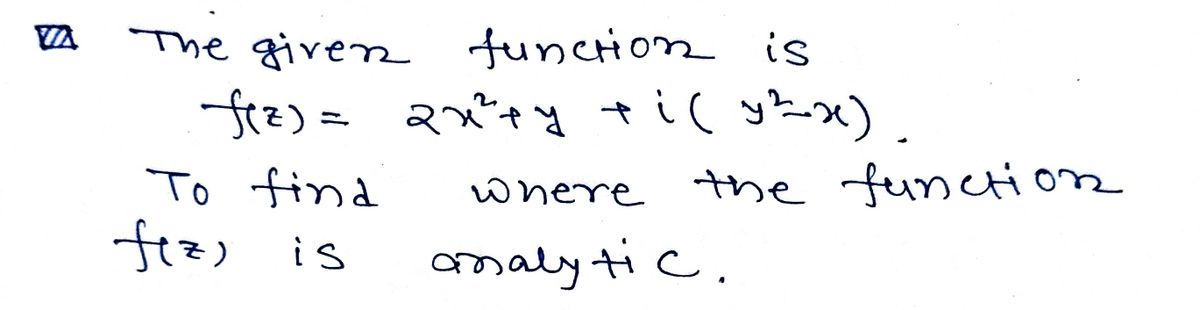 The given function is
f(z) = 2x²+y + i( y²-x).
To find where the function
f(z) is analytic.